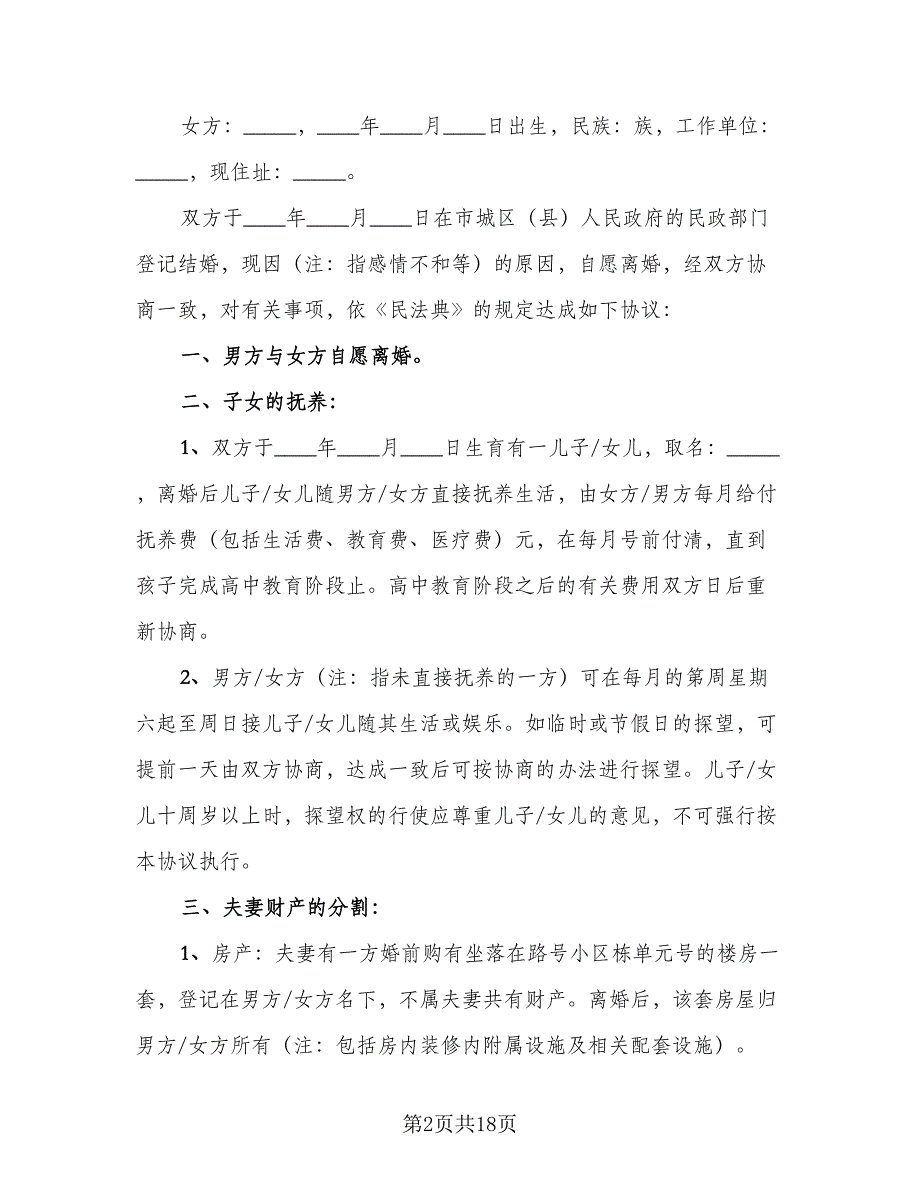 女方：_____，____年____月____日出生，民族：族，工作单位：
_____，现住址：_____。
双方于____年____月____日在市城区（县）人民政府的民政部门
登记结婚，现因（注：指感情不和等）的原因，自愿离婚，经双方协
商一致，对有关事项，依《民法典》的规定达成如下协议：
一、男方与女方自愿离婚。
二、子女的抚养：
1、双方于____年____月____日生育有一儿子/女儿，取名：_____
，离婚后儿子/女儿随男方/女方直接抚养生活，由女方/男方每月给付
抚养费（包括生活费、教育费、医疗费）元，在每月号前付清，直到
孩子完成高中教育阶段止。高中教育阶段之后的有关费用双方日后重
新协商。
2、男方/女方（注：指未直接抚养的一方）可在每月的第周星期
六起至周日接儿子/女儿随其生活或娱乐。如临时或节假日的探望，可
提前一天由双方协商，达成一致后可按协商的办法进行探望。儿子/女
儿十周岁以上时，探望权的行使应尊重儿子/女儿的意见，不可强行按
本协议执行。
三、夫妻财产的分割：
1、房产：夫妻有一方婚前购有坐落在路号小区栋单元号的楼房一
套，登记在男方/女方名下，不属夫妻共有财产。离婚后，该套房屋归
男方/女方所有（注：包括房内装修内附属设施及相关配套设施）。
第2页共18页